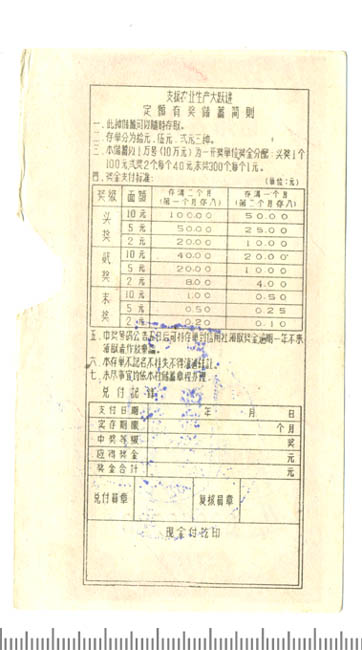 支援农业生产大跃进
定额有奖储蓄简则
一、此种储蓄可以随时存取。
二、存单分为拾元、伍元、贰元三种。
三、本储蓄以1万号(10万元)为一开奖单位奖金分配：头奖1个
100元贰奖2个每个40元,末奖300个每个1元。
四、奖金支付标准： (单位：元)
奖级 面额 存满二个月(第一个月存入) 存满一个月(第二个月存入)
头奖 10元 100.00 50.00
5元 50.00 25.00
2元 20.00 10.00
贰奖 10元 40.00 20.00
5元 20.00 10.00
2元 8.00 4.00
末奖 10元 1.00 0.50
5元 0.50 0.25
2元 0.20 0.10
五、中奖号码公告 日后可持存单到信用社领取奖金逾期一年不来
领取者作放弃论。
六、本存单不记名不挂失不得流通
七、未尽事宜均依本社储蓄章程办理。
兑付记录
支付日期 年 月 日
实存期限 个月
中奖等级 奖
应得奖金 元
奖金合计 元
兑付员章 复核员章
现金付讫印